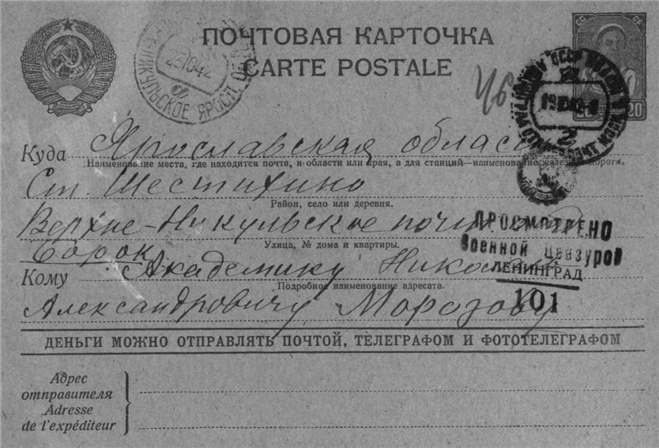 ПОЧТОВАЯ КАРТОЧКА
CARTE POSTALE
20
Куда Ярославская область
Наименование места, где находится почта, и области или края, а для станций—наименование железной дороги.
Ст. Шестихино
Район, село или деревня.
Верхне-Никульское
Улица, № дома и квартиры.
Борок
Кому Академику Николаю
Подробное наименование адресата.
Александровичу Морозову
ПРОСМОТРЕНО
Военной Цензурой
ЛЕНИНГРАД
101
ДЕНЬГИ МОЖНО ОТПРАВЛЯТЬ ПОЧТОЙ, ТЕЛЕГРАФОМ И ФОТОТЕЛЕГРАФОМ
Адрес
отправителя
Adresse
de l'expéditeur